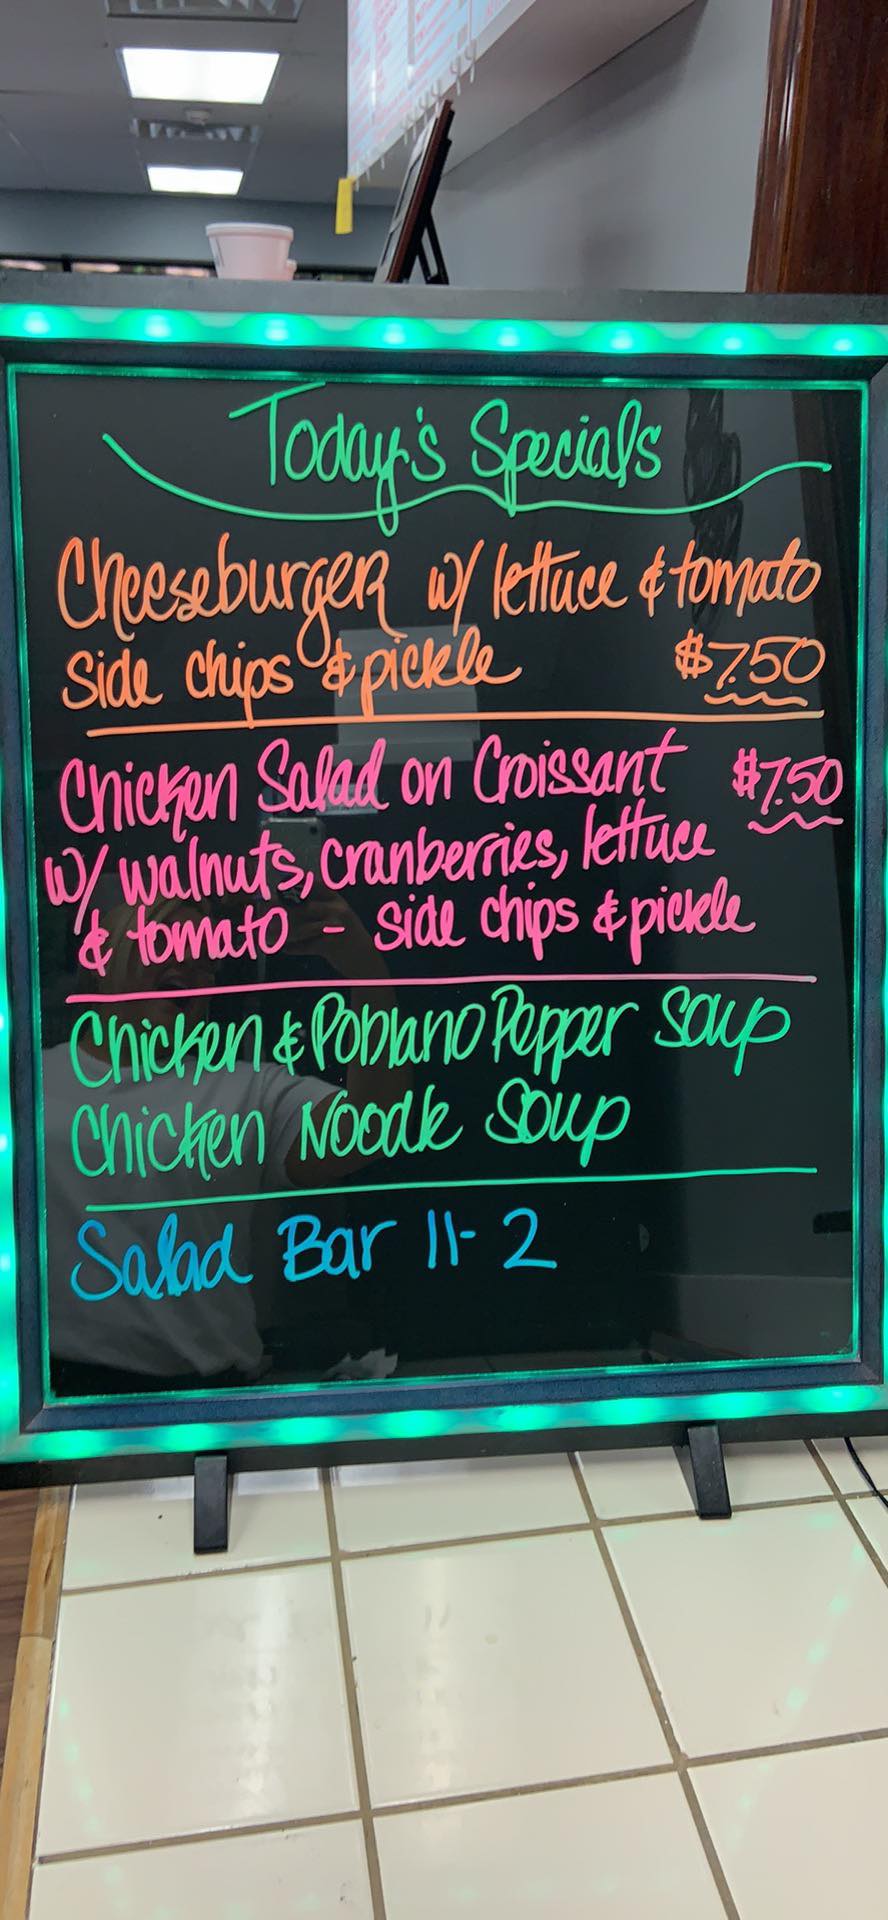 Today's Specials
Cheeseburger w/ lettuce & tomato
side chips & pickle $7.50
Chicken Salad on Croissant $7.50
w/ walnuts, cranberries, lettuce
& tomato - side chips & pickle
Chicken & Poblano Pepper Soup
Chicken Noodle Soup
Salad Bar 11-2